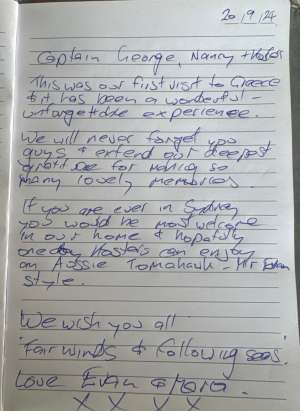 20/9/24
Captain George, Nancy + Kostas
This was our first visit to Greece
& it has been a wonderful -
unforgettable experience.
We will never forget you
guys & extend our deepest
gratitude for having so
many lovely memories.
If you are ever in Sydney
you would be most welcome
in our home & hopefully
one day Kostas can enjoy
an Aussie Tomahawk - Mr
style.
We wish you all
Fair winds & following seas.
Love Evan &
X X X X